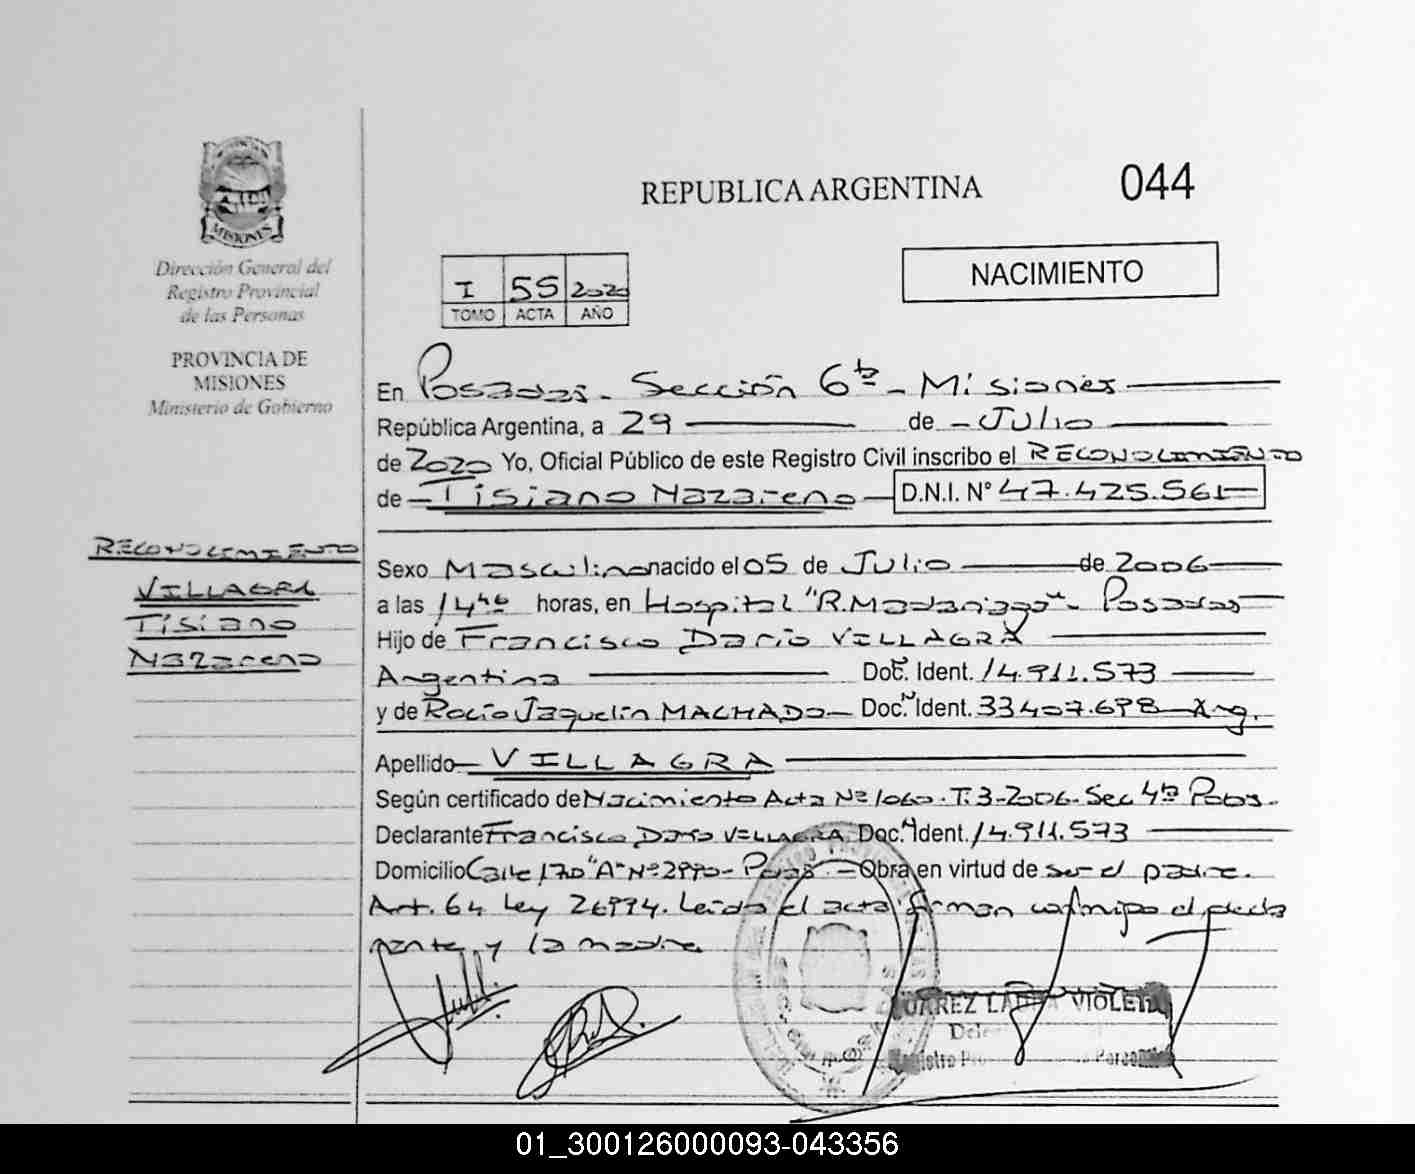 REPUBLICA ARGENTINA
044
MISIONES
Dirección General del
Registro Provincial
de las Personas
PROVINCIA DE
MISIONES
Ministerio de Gobierno
I 55 2020
TOMO ACTA AÑO
NACIMIENTO
En Posadas - Sección 6ta - Misiones
República Argentina, a 29 de - Julio
de 2020 Yo, Oficial Público de este Registro Civil inscribo el RECONOCIMIENTO
de - Tisiano Nazareno - D.N.I. N° 47.425.561
RECONOCIMIENTO
VILLAGRA
Tisiano
Nazareno
Sexo Masculino nacido el 05 de Julio de 2006
a las 14 horas, en Hospital "R. Madariaga" - Posadas
Hijo de Francisco Darío VILLAGRA
Argentina Doc. Ident. 14.911.573
y de Rocío Jaquelin MACHADO - Doc. Ident. 33.407.698 - Arg.
Apellido - VILLAGRA
Según certificado de Nacimiento Acta N° 1060 - T. 3 - 2006 - Sec 4ta Pdas.
Declarante Francisco Darío VILLAGRA Doc. Ident. 14.911.573
Domicilio Calle 170 "A" N° 2990 - Pdas. - Obra en virtud de ser el padre.
Art. 64 Ley 26994. Leída el acta firman conmigo el decla
rante y la madre
JUAREZ LAURA VIOLETA
01_300126000093-043356